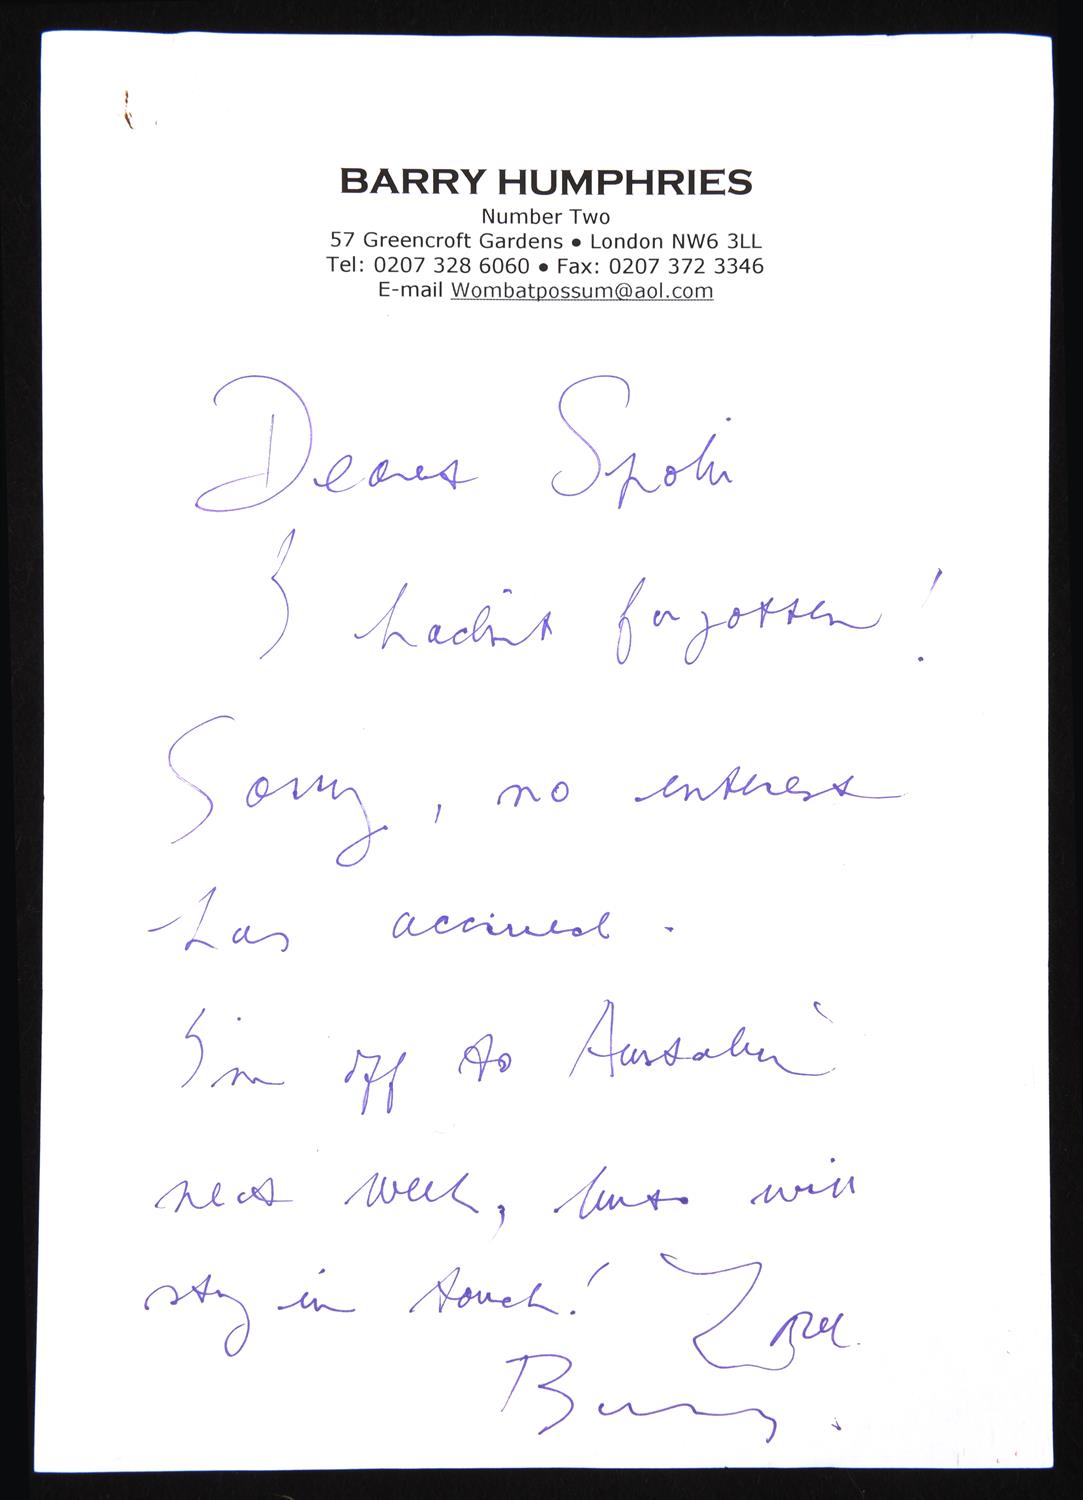 BARRY HUMPHRIES
Number Two
57 Greencroft Gardens • London NW6 3LL
Tel: 0207 328 6060 • Fax: 0207 372 3346
E-mail Wombatpossum@aol.com
Dearest Spoli
I hadn't forgotten!
Sorry, no interest
has accrued.
I'm off to Australia
next week, but will
stay in touch! Love
Barry.